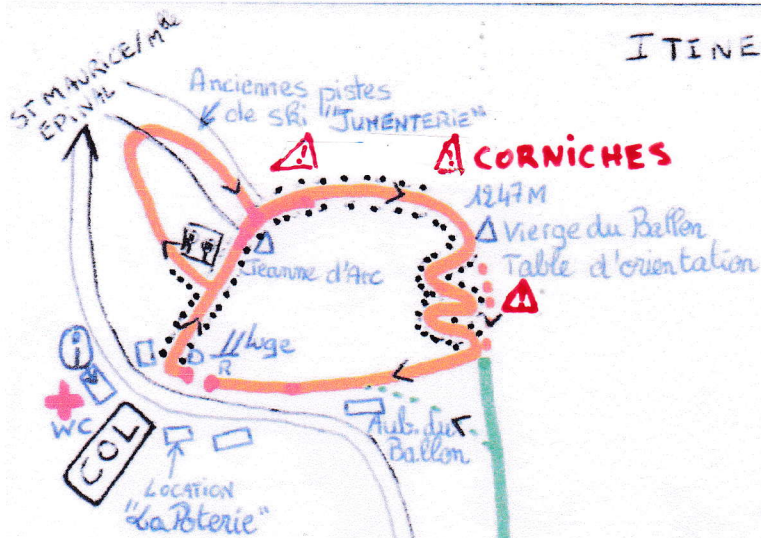 ITINE
ST MAURICE/Mlle
EPINAL
Anciennes pistes
de ski "JUMENTERIE"
CORNICHES
1247M
Vierge du Ballon
Table d'orientation
Jeanne d'Arc
D
luge
R
i
WC
COL
Aub. du
Ballon
LOCATION
"La Poterie"